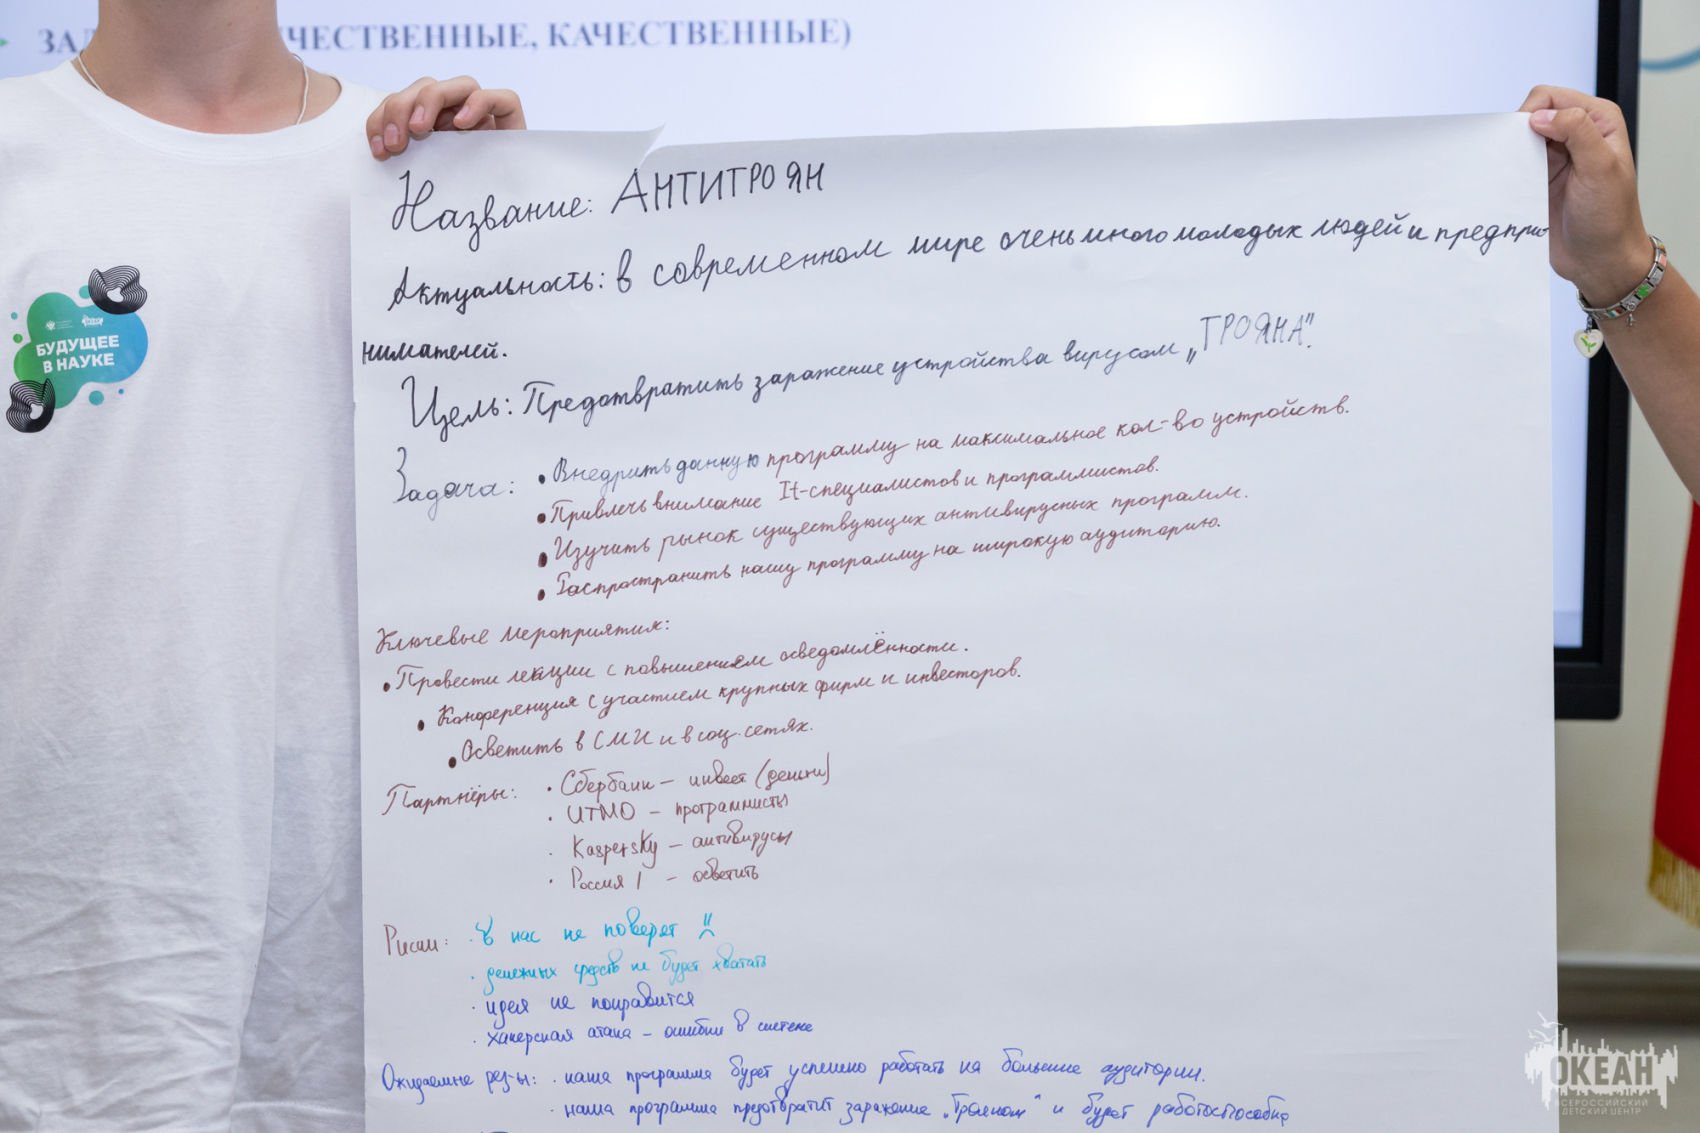 ЧЕСТВЕННЫЕ, КАЧЕСТВЕННЫЕ)
БУДУЩЕЕ
В НАУКЕ
Название: АНТИТРОЯН
Актуальность: в современном мире очень много молодых людей и предпри-
нимателей.
Цель: Предотвратить заражение устройства вирусом „ТРОЯНА".
Задача:
• Внедрить данную программу на максимальное кол-во устройств.
• Привлечь внимание It-специалистов и программистов.
• Изучить рынок существующих антивирусных программ.
• Распространить нашу программу на широкую аудиторию.
Ключевые мероприятия:
• Провести лекции с повышением осведомлённости.
• Конференция с участием крупных фирм и инвесторов.
• Осветить в СМИ и в соц. сетях.
Партнёры: · Сбербанк – инвест (деньги)
· ИТМО – программисты
· Kaspersky – антивирусы
· Россия 1 – осветить
Риски: · В нас не поверят
· денежных средств не будет хватать
· идея не понравится
· хакерская атака – ошибки в системе
Ожидаемые рез-ы: · наша программа будет успешно работать на большие аудитории.
· наша программа предотвратит заражение „Трояном" и будет работоспособна
ОКЕАН
ВСЕРОССИЙСКИЙ
ДЕТСКИЙ ЦЕНТР